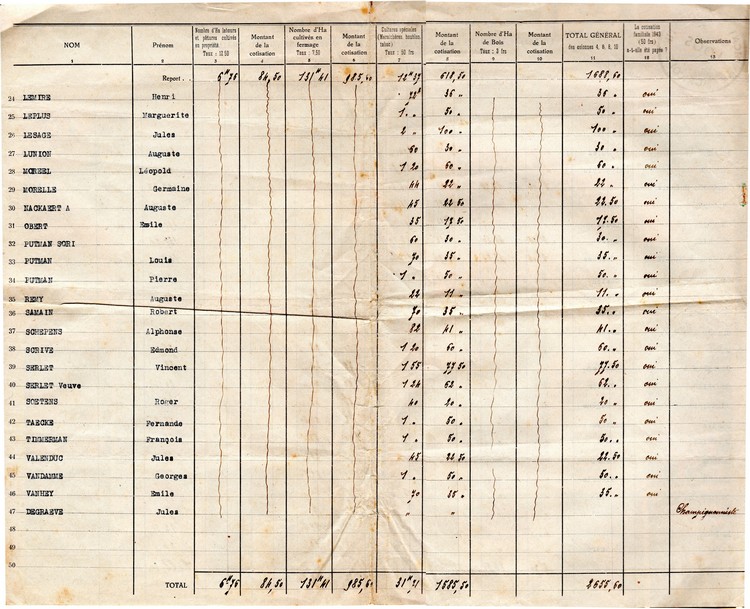 NOM Prénom Nombre d'Ha labours et pâtures cultivés en propriété Taux : 12.50 Montant de la cotisation Nombre d'Ha cultivés en fermage Taux : 7.50 Montant de la cotisation Cultures spéciales (Maraîchères houblon tabac) Taux : 50 frs Montant de la cotisation Nombre d'Ha de Bois Taux : 3 frs Montant de la cotisation TOTAL GÉNÉRAL des colonnes 4, 6, 8, 10 La cotisation familiale 1943 (50 frs) a-t-elle été payée ? Observations
1 2 3 4 5 6 7 8 9 10 11 12 13
Report . 6 Ha 76 84,50 131 Ha 41 985,60 12 Ha 37 618,50 1688,60
24 LEMIRE Henri 36 „ 36 „ oui
25 LEPLUS Marguerite 1 „ 50 „ 50 „ oui
26 LESAGE Jules 2 „ 100 „ 100 „ oui
27 LUNION Auguste 60 30 „ 30 „ oui
28 MOREEL Léopold 1 20 60 „ 60 „ oui
29 MORELLE Germaine 44 22 „ 22 „ oui
30 NACKAERT A Auguste 45 22 50 22.50 oui
31 OBERT Emile 35 17.50 17.50 oui
32 PUTMAN SORI 60 30 „ 30 „ oui
33 PUTMAN Louis 70 35 „ 35 „ oui
34 PUTMAN Pierre 1 „ 50 „ 50 „ oui
35 REMY Auguste 22 11 „ 11 „ oui
36 SAMAIN Robert 70 35 „ 35 „ oui
37 SCHEPENS Alphonse 82 41 „ 41 „ oui
38 SCRIVE Edmond 1 20 60 „ 60 „ oui
39 SERLET Vincent 1 55 77.50 77.50 oui
40 SERLET Veuve 1 24 62 „ 62 „ oui
41 SOETENS Roger 40 20 „ 20 „ oui
42 TAECKE Fernande 1 „ 50 „ 50 „ oui
43 TIMMERMAN François 1 „ 50 „ 50 „ oui
44 VALENDUC Jules 45 22,50 22.50 oui
45 VANDAMME Georges 1 „ 50 „ 50 „ oui
46 VANHEY Emile 70 35 „ 35 „ oui
47 DEGRAEVE Jules „ „ Champignonniste
48
49
50
TOTAL 6 Ha 76 84,50 131 Ha 41 985,60 31 Ha 71 1585,50 2655,60